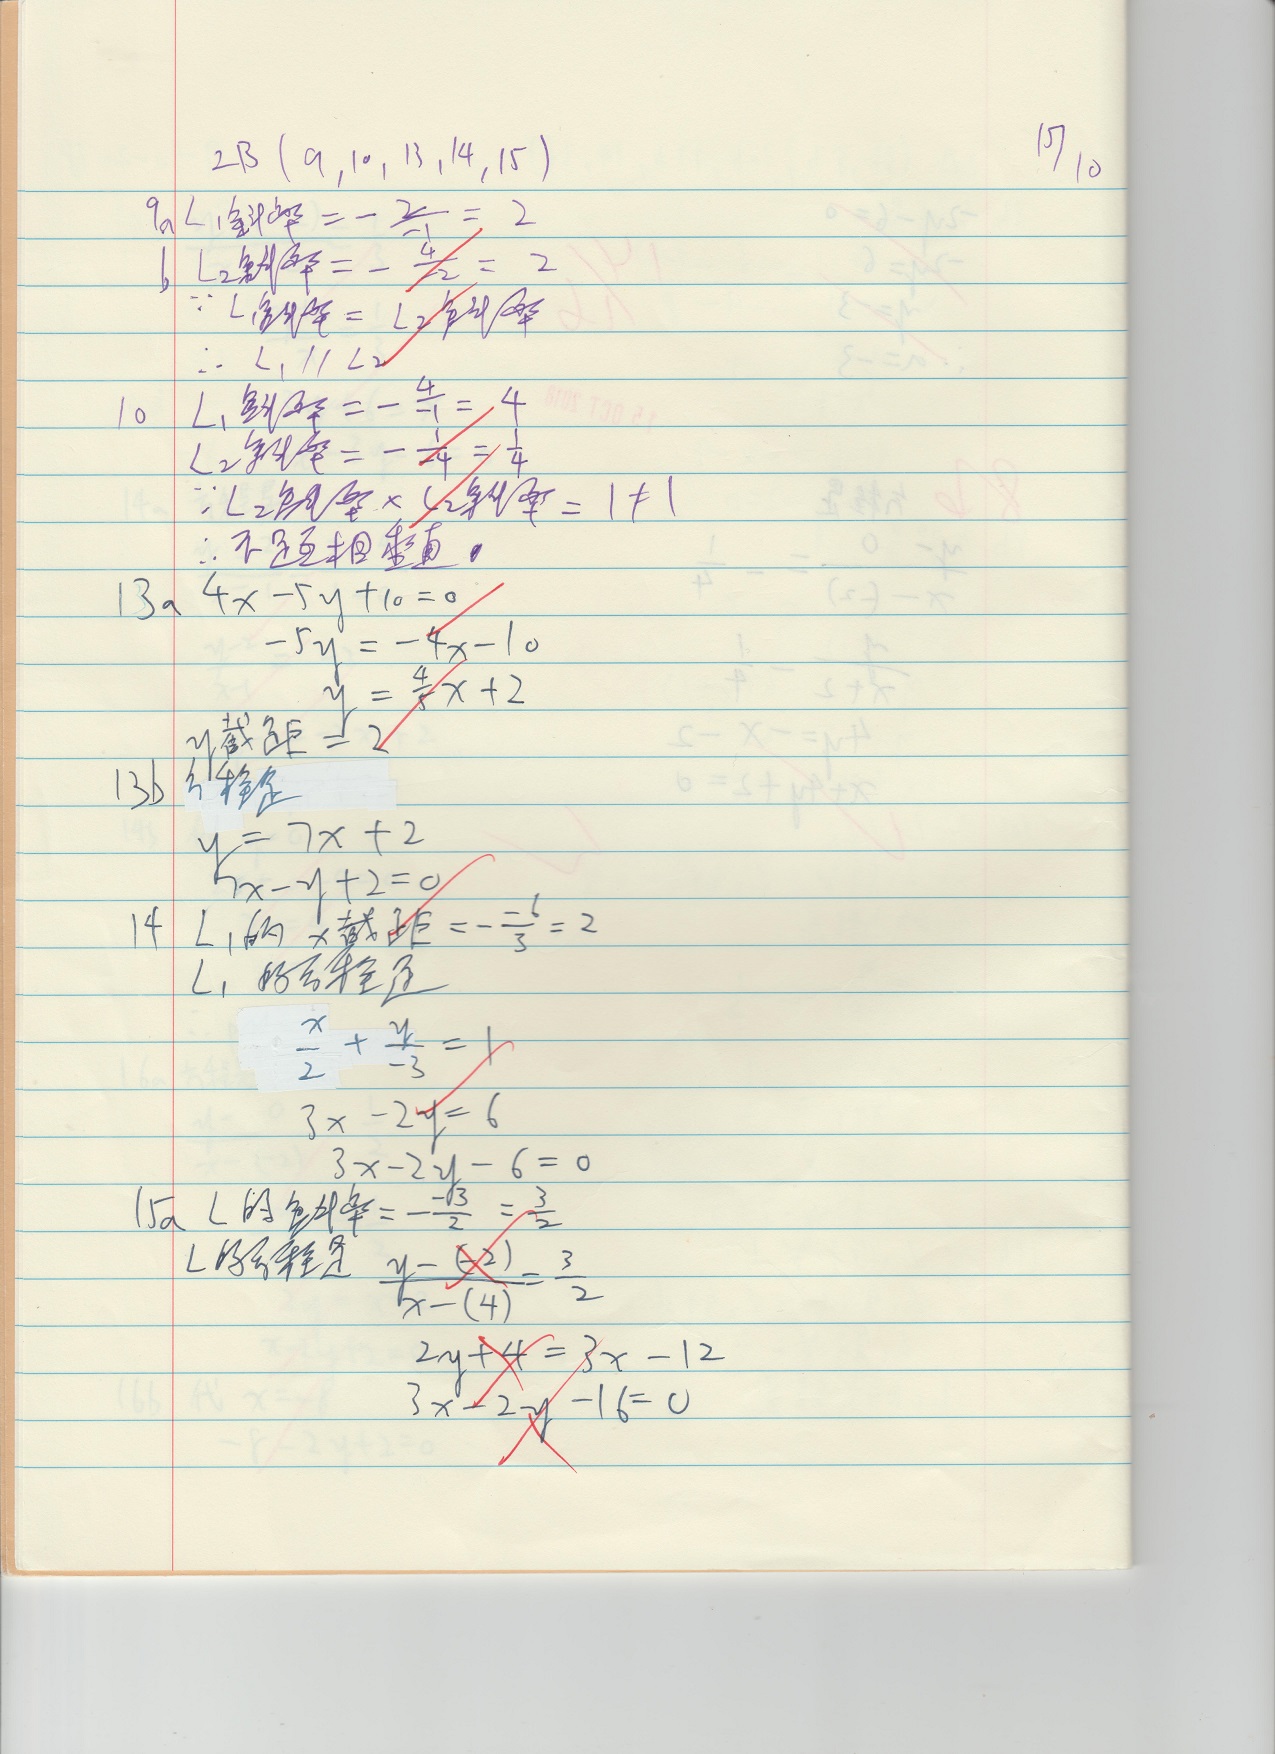 2B (9, 10, 13, 14, 15)
15/10
9a L₁斜率 = - 2/-1 = 2
b L₂斜率 = - 4/-2 = 2
∵ L₁斜率 = L₂斜率
∴ L₁ // L₂
10 L₁斜率 = - 4/-1 = 4
L₂斜率 = - 1/-4 = 1/4
∵ L₂斜率 × L₂斜率 = 1 ≠ 1
∴ 不是互相垂直。
13a 4x - 5y + 10 = 0
-5y = -4x - 10
y = 4/5 x + 2
y截距 = 2
13b 方程是
y = 7x + 2
7x - y + 2 = 0
14 L₁的 x截距 = - -6/3 = 2
L₁ 的方程是
x/2 + y/-3 = 1
3x - 2y = 6
3x - 2y - 6 = 0
15a L的斜率 = - -3/2 = 3/2
L的方程是 y - (-2) / x - (4) = 3/2
2y + 4 = 3x - 12
3x - 2y - 16 = 0